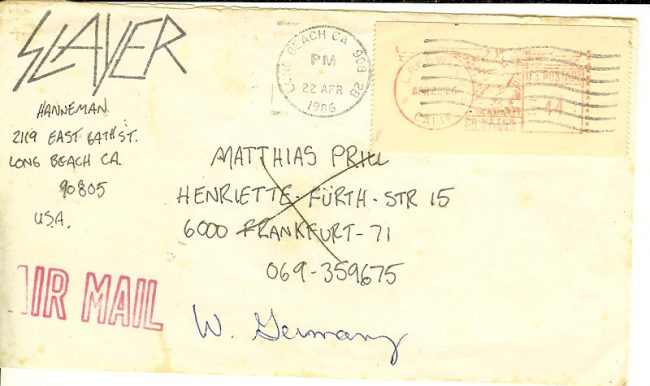 SLAYER
HANNEMAN
2119 EAST 64TH ST.
LONG BEACH CA.
90805
U.S.A.
LONG BEACH CA 908 28
PM
22 APR
1986
CALIF
U.S. POSTAGE
44
METER
MATTHIAS PRILL
HENRIETTE-FÜRTH-STR 15
6000 FRANKFURT-71
069-359675
W. Germany
AIR MAIL